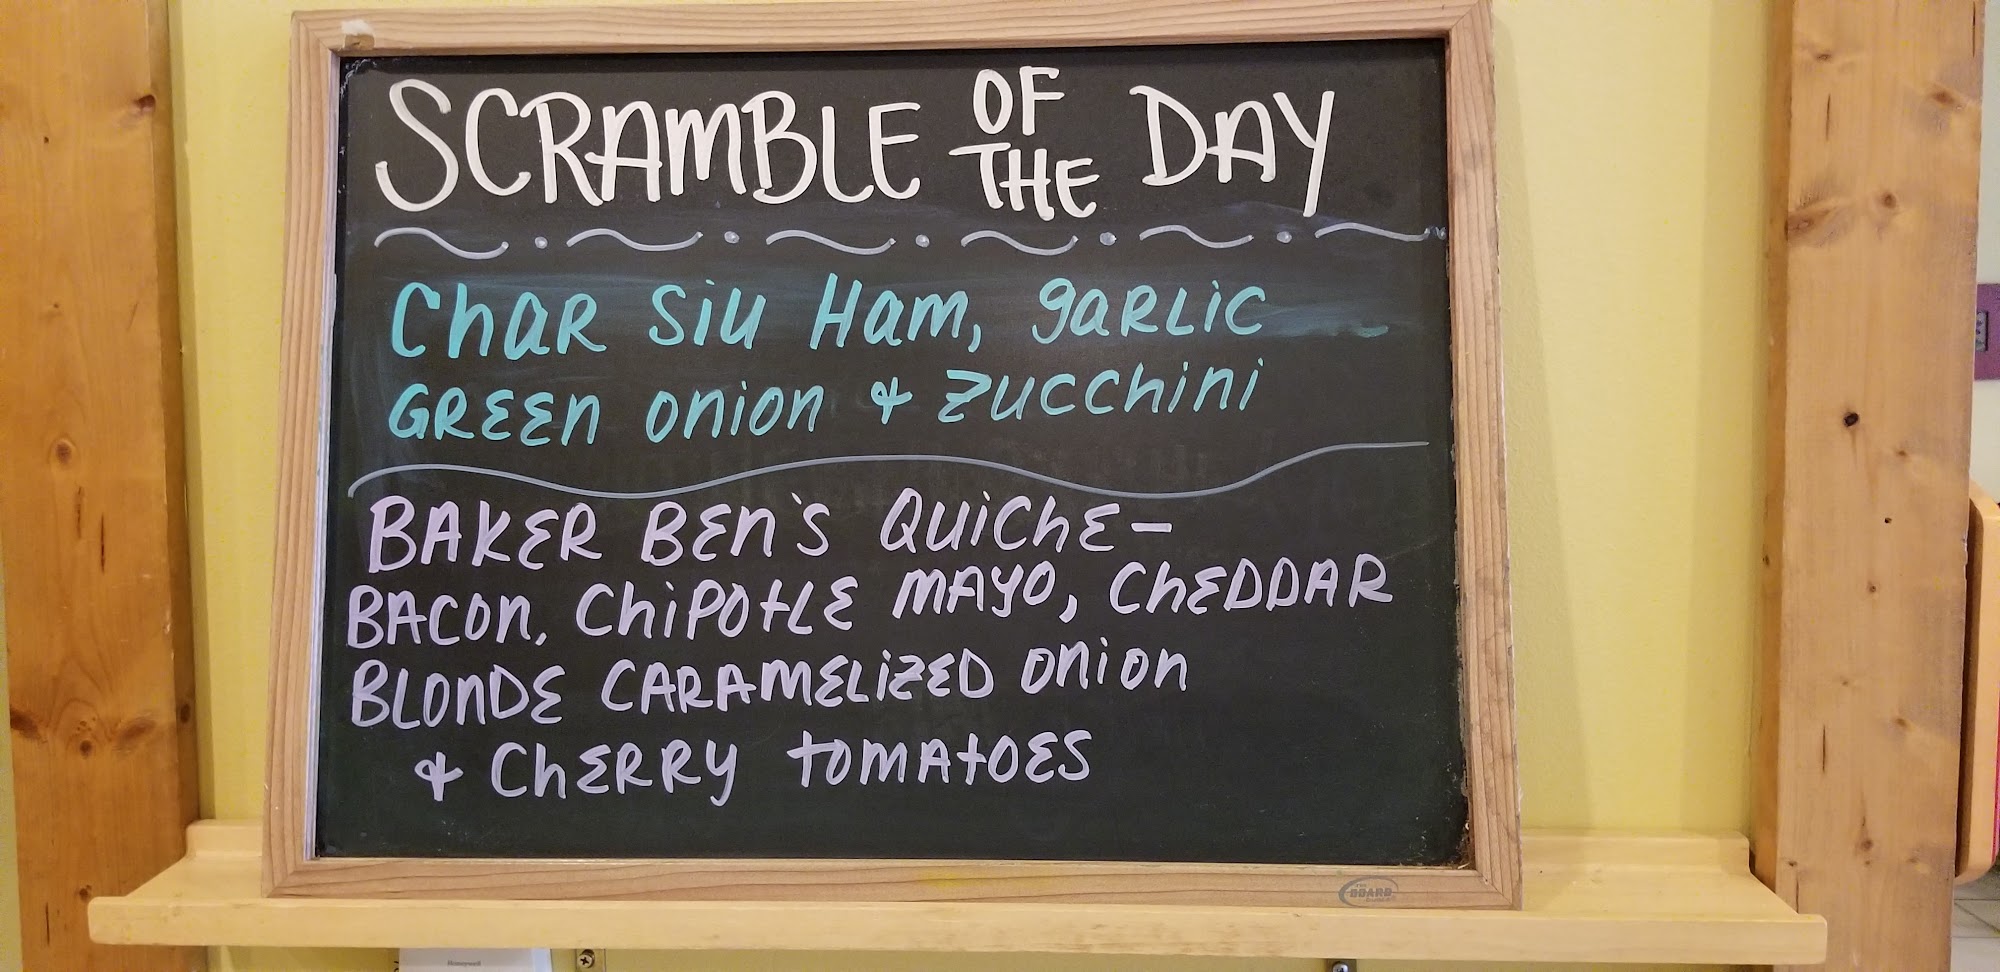 SCRAMBLE OF THE DAY
Char Siu Ham, garlic
Green onion & zucchini
Baker Ben's Quiche-
Bacon, Chipotle Mayo, Cheddar
Blonde Caramelized Onion
& Cherry Tomatoes
BOARD
Honeywell